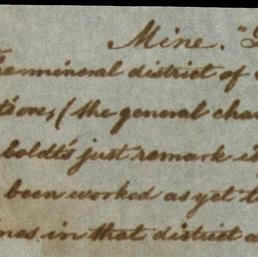 Mine. "
mineral district of
(the general cha
boldt's just remark i
been worked as yet t
nes in that district a